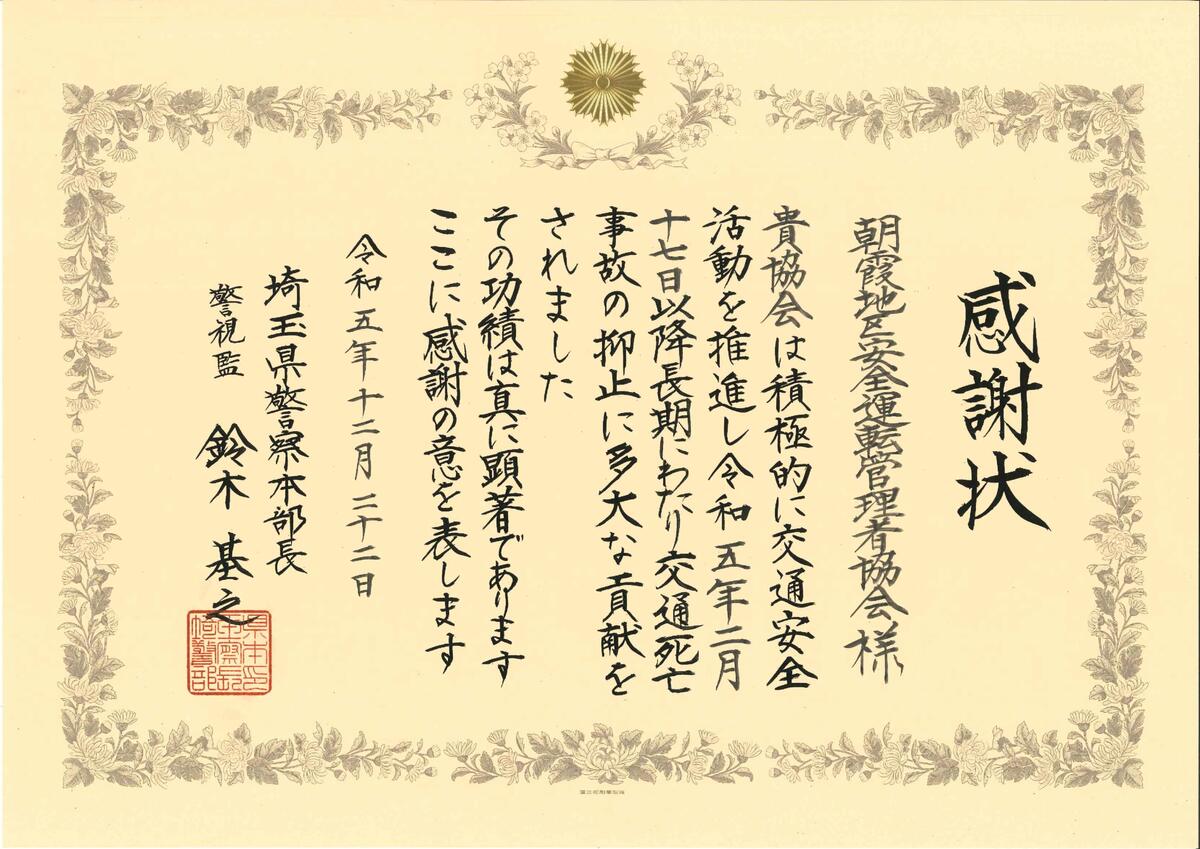 感謝状
朝霞地区安全運転管理者協会様
貴協会は積極的に交通安全
活動を推進し令和五年二月
十七日以降長期にわたり交通死亡
事故の抑止に多大な貢献を
されました
その功績は真に顕著であります
ここに感謝の意を表します
令和五年十二月二十二日
埼玉県警察本部長
警視監 鈴木基之